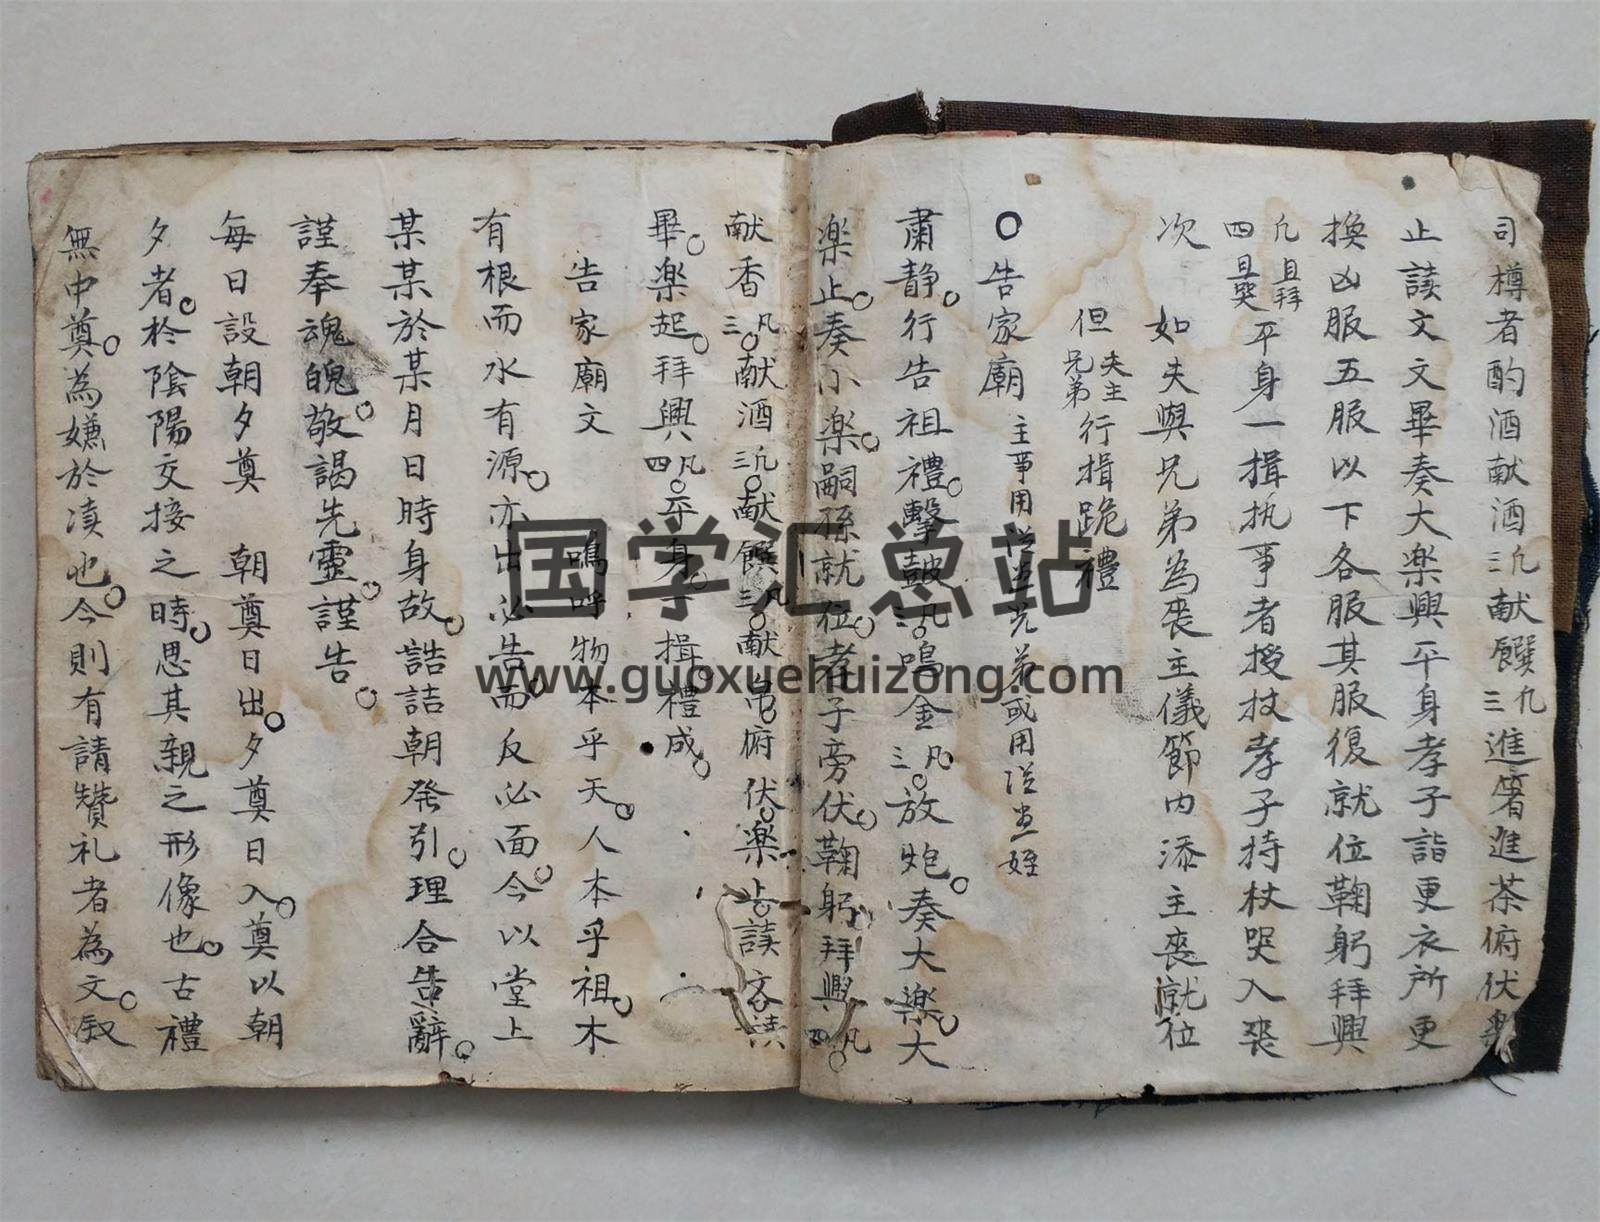 司樽者酌酒献酒三凡献饌三凡進箸進茶俯伏樂
止讀文文畢奏大楽興平身孝子詣更衣所更
換凶服五服以下各服其服復就位鞠躬拜興
四凡且拜且哭平身一揖执事者授杖孝子持杖哭入喪
次 如夫與兄弟為丧主儀節内添主喪就位
但夫主兄弟行揖跪禮
〇告家廟 主事用従兄弟或用
肅静。行告祖禮。擊鼓三凡。鳴金三凡。放炮。奏大樂。大
楽止。奏小楽。嗣孫就位。孝子旁伏。鞠躬拜興四凡。
献香三凡。献酒三凡。献饌三凡。献帛。俯伏。楽止。讀文。讀
畢。楽起。拜興四凡。平身。一揖。禮成。
告家廟文 嗚呼物本乎天。人本乎祖。木
有根而水有源。亦出必告而反必面。今以堂上
某某於某月日時身故。詰朝発引。理合告辭。
謹奉魂魄。敬謁先靈。謹告。
每日設朝夕奠 朝奠日出。夕奠日入。奠以朝
夕者。於陰陽交接之時。思其親之形像也。古禮
無中奠。為嫌於凟也。今則有請贊礼者為文。叙
国学汇总站
www.guoxuehuizong.com